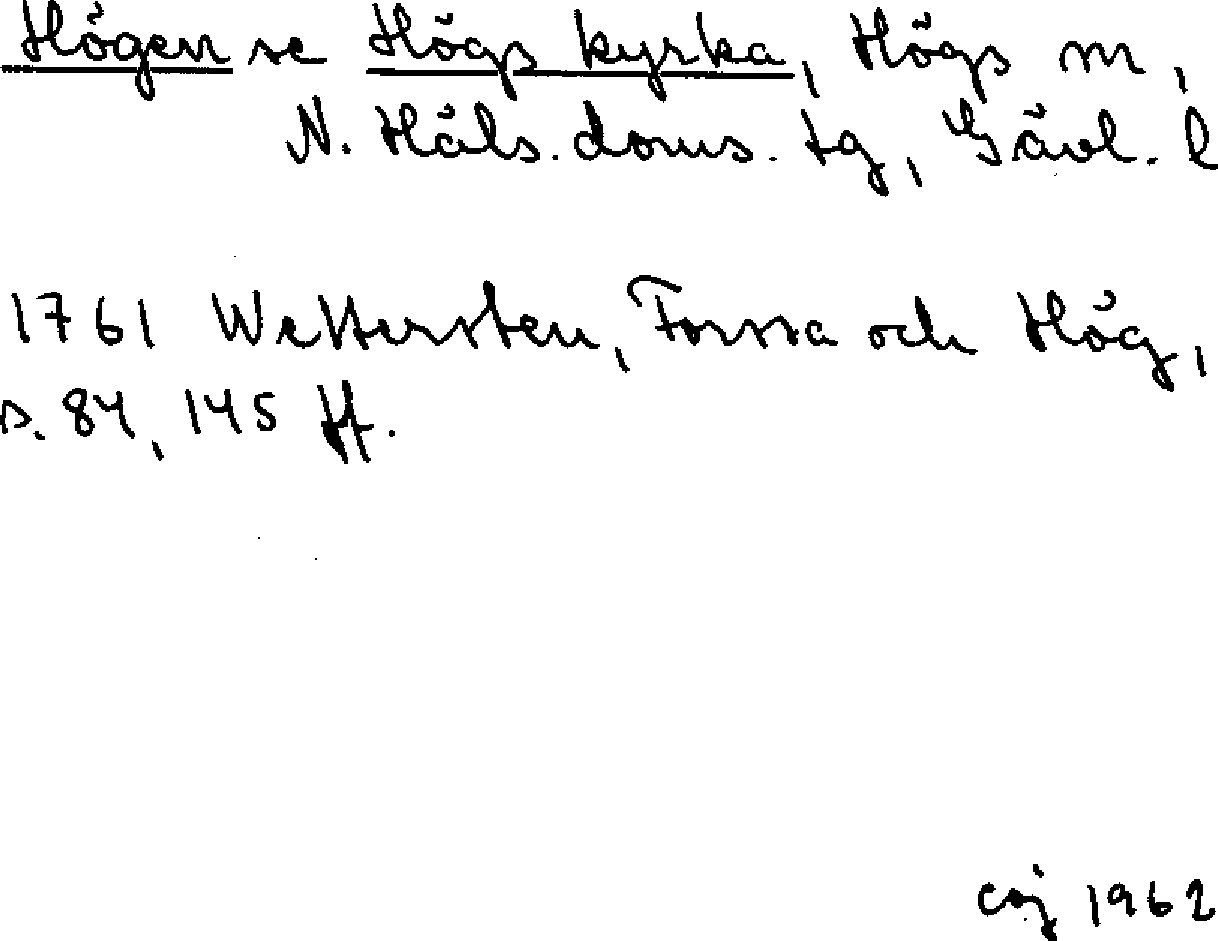 Högen se Högs kyrka, Högs sn,
N. Häls. doms. tg, Gävl. l
1761 Wettersten, Forssa och Hög,
s. 84, 145 ff.
caj 1962